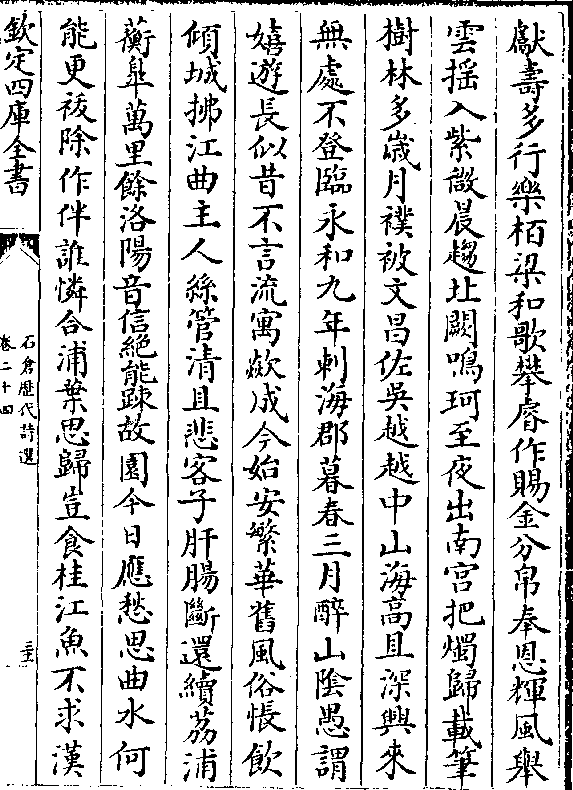 獻壽多行樂栢梁和歌攀睿作賜金分帛奉恩輝風舉
雲揺入紫㣲晨趨北闕鳴珂至夜出南宮把燭歸載筆
樹林多歳月襆被文昌佐吳越越中山海髙且深興來
無處不登臨永和九年刺海郡暮春三月醉山陰愚謂
嬉遊長似昔不言流寓歘成今始安繁華舊風俗悵飲
傾城拂江曲主人絲管清且悲客子肝腸斷還續荔浦
蘅臯萬里餘洛陽音信絶能疎故園今日應愁思曲水何
能更祓除作伴誰憐合浦葉思歸豈食桂江魚不求漢
欽定四庫全書
石倉歴代詩選
卷二十四
二十